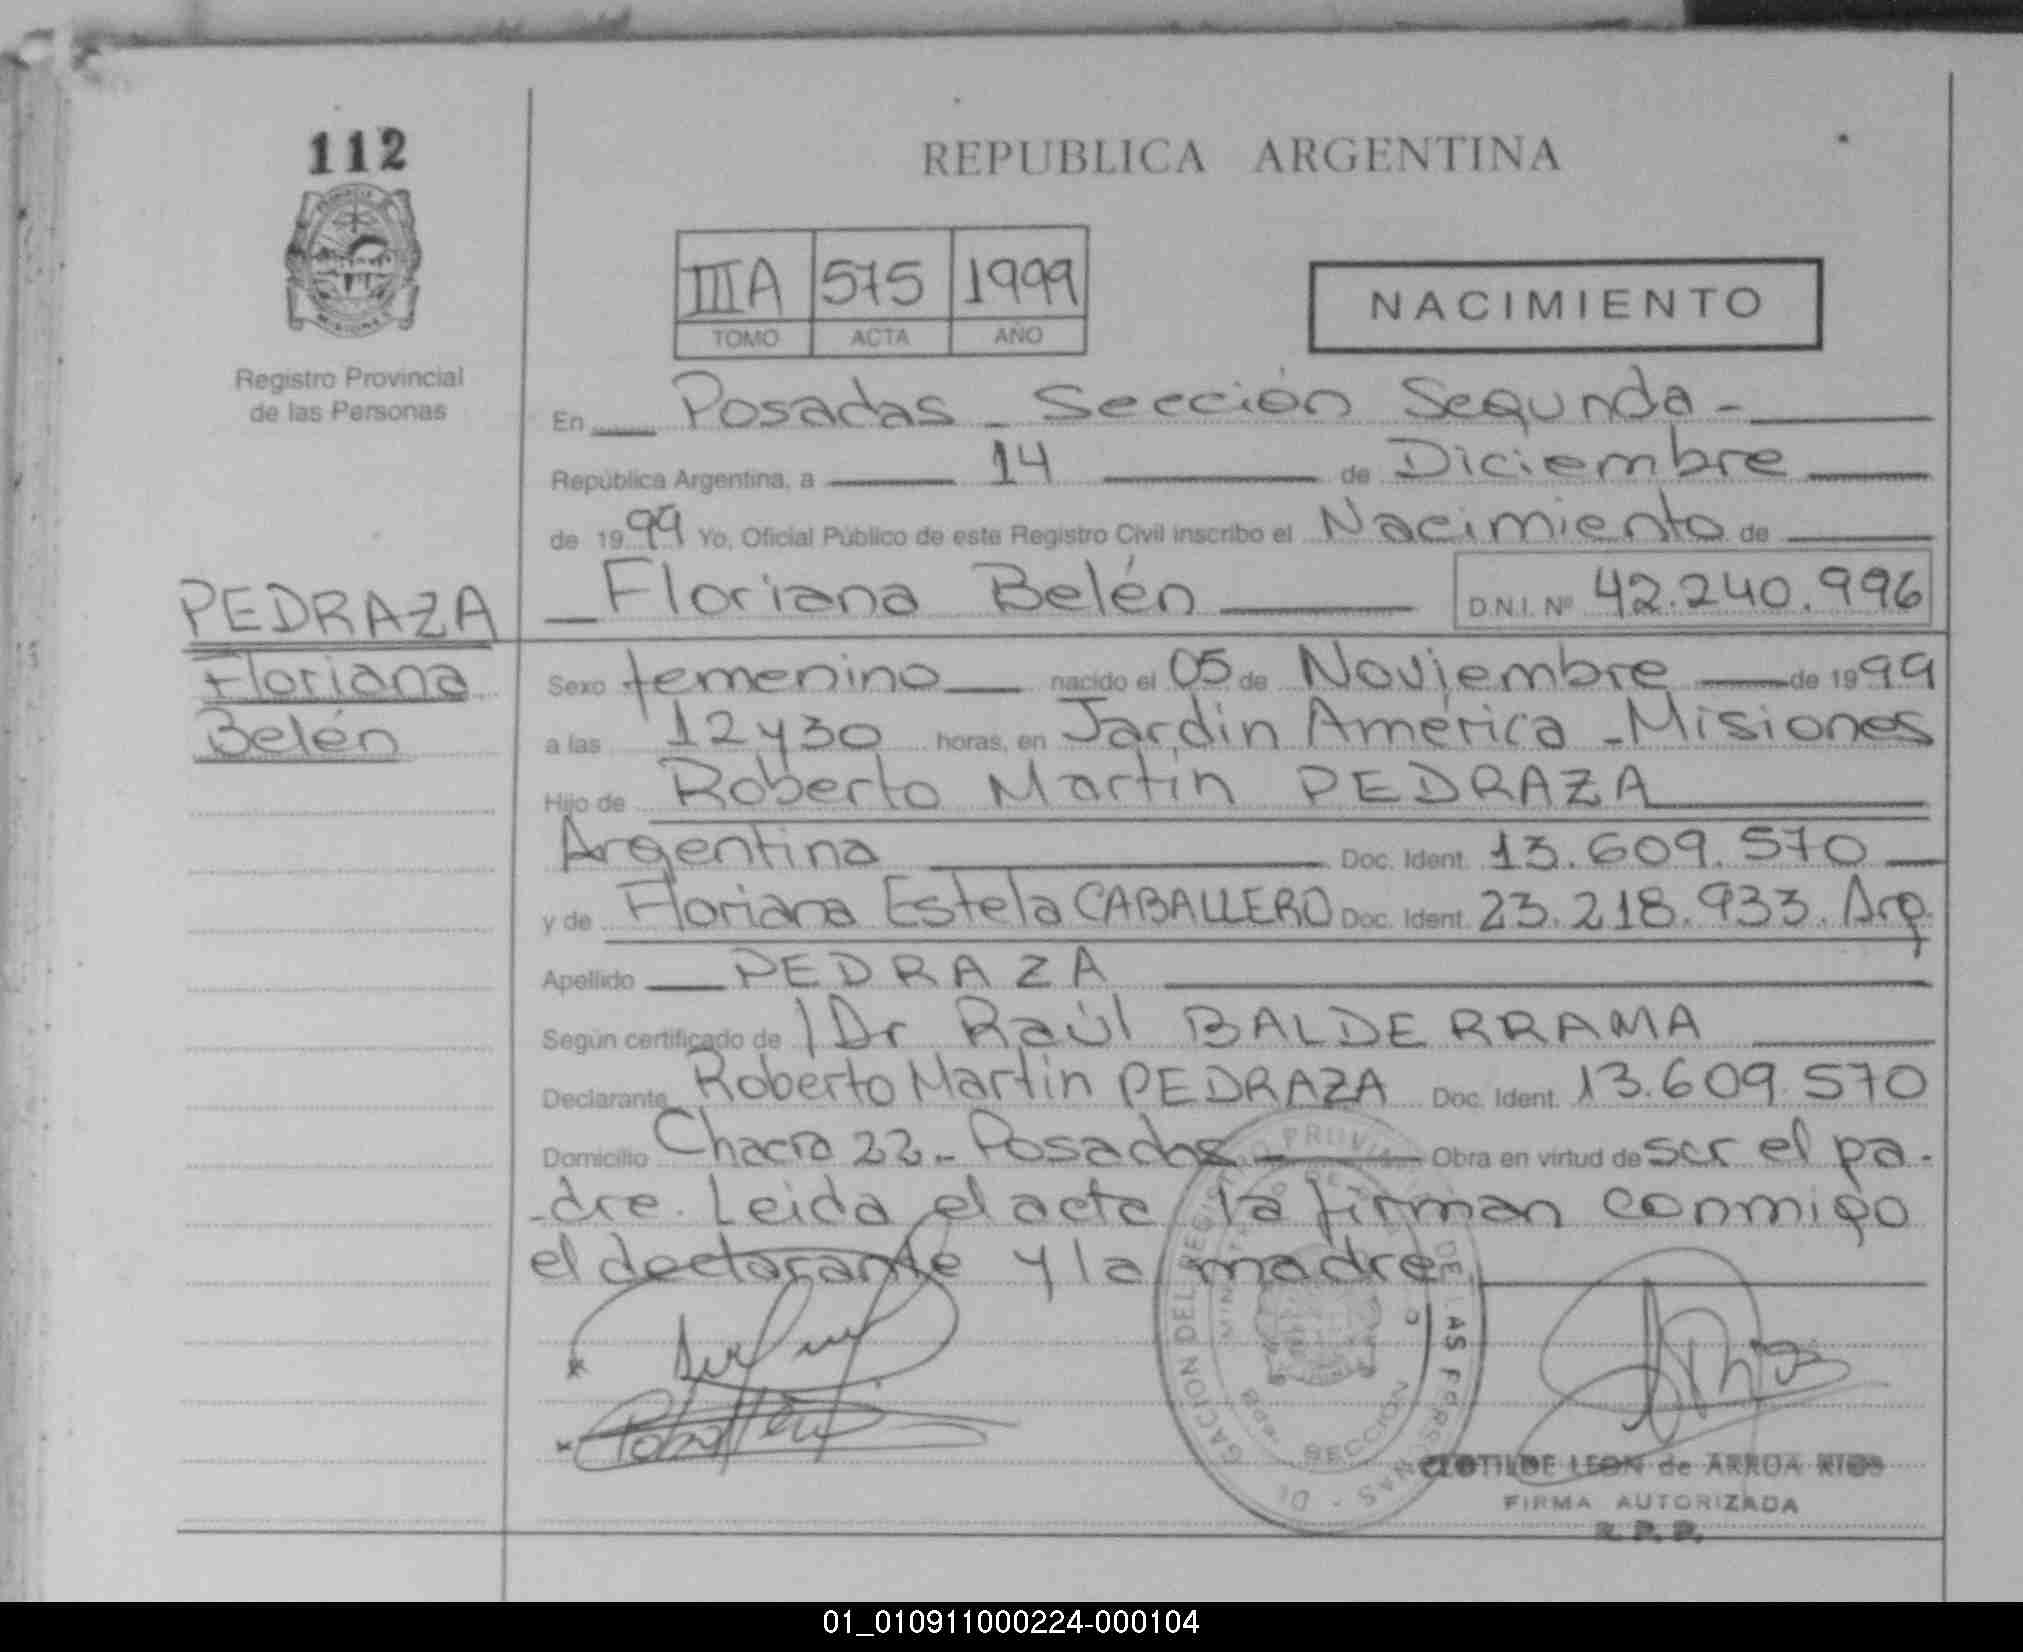 112
REPUBLICA ARGENTINA
IIIA 575 1999
TOMO ACTA AÑO
NACIMIENTO
MISIONES
Registro Provincial
de las Personas
En Posadas - Sección Segunda -
República Argentina, a 14 de Diciembre
de 1999 Yo, Oficial Público de este Registro Civil inscribo el Nacimiento de
Floriana Belén D.N.I. Nº 42.240.996
PEDRAZA
Floriana
Belén
Sexo femenino nacido el 05 de Noviembre de 1999
a las 12 y 30 horas, en Jardín América - Misiones
Hijo de Roberto Martin PEDRAZA
Argentina Doc. Ident. 13.609.570
y de Floriana Estela CABALLERO Doc. Ident. 23.218.933. Arg.
Apellido PEDRAZA
Según certificado de / Dr Raúl BALDERRAMA
Declarante Roberto Martin PEDRAZA Doc. Ident. 13.609.570
Domicilio Chacra 22 - Posadas - Obra en virtud de ser el pa-
-dre. Leida el acta la firman conmigo
el declarante y la madre
SECCION
CLOTILDE LEON de ARROA RIOS
FIRMA AUTORIZADA
R. P. P.
01_010911000224-000104